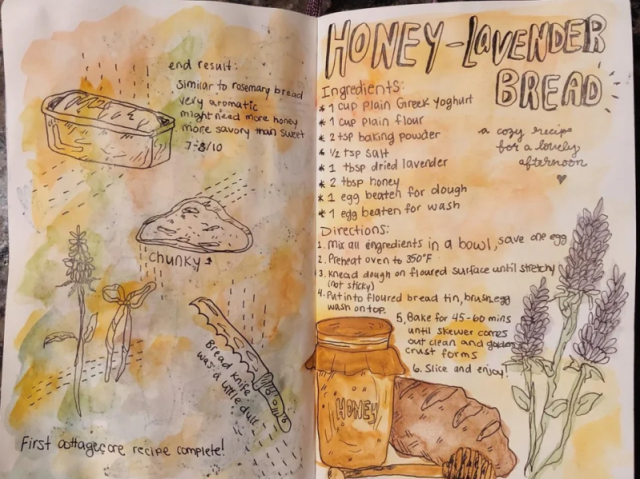 end result:
Similar to rosemary bread
very aromatic
might need more honey
more savory than sweet
7-8/10
chunky
Bread knife
was a little dull
First cottagecore recipe complete!
HONEY-LAVENDER
BREAD
Ingredients:
* 1 cup plain Greek Yoghurt
* 1 cup plain flour
* 2 tsp baking powder
* ½ tsp salt
* 1 tbsp dried lavender
* 2 tbsp honey
* 1 egg beaten for dough
* 1 egg beaten for wash
a cozy recipe
for a lovely
afternoon
Directions:
1. Mix all ingredients in a bowl, save one egg
2. Preheat oven to 350°F
3. Knead dough on floured surface until stretchy
(not sticky)
4. Put into floured bread tin, brush egg
wash on top.
5. Bake for 45-60 mins
until skewer comes
out clean and golden
crust forms
6. Slice and enjoy!
HONEY